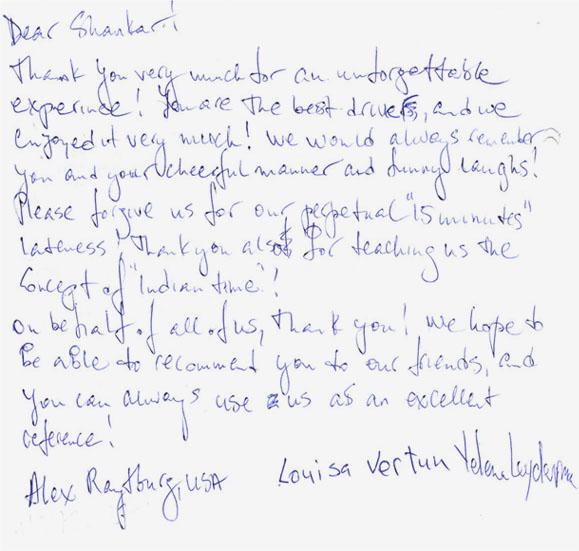 Dear Shankar!
Thank you very much for an unforgettable
experince! You are the best driver, and we
enjoyed it very much! We would always remember
you and your cheerful manner and funny laughs!
Please forgive us for our perpetual "15 minutes"
lateness! Thank you also for teaching us the
concept of "Indian time"!
On behalf of all of us, thank you! We hope to
be able to recomment you to our friends, and
you can always use us as an excellent
reference!
Alex Raytburg, USA Louisa Vertun Yelena